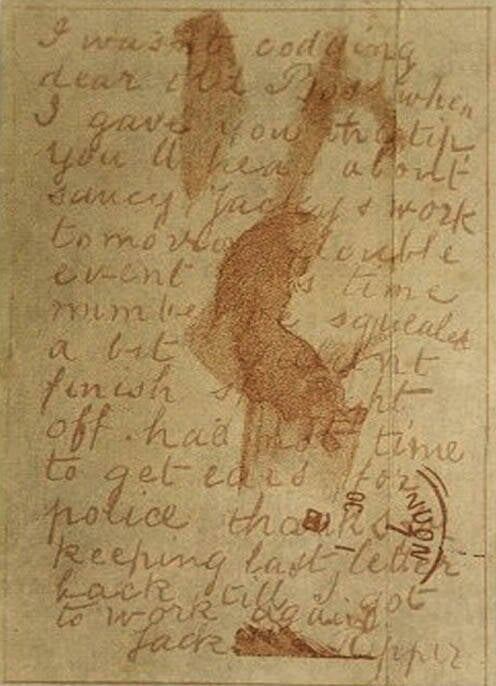 I wasnt codding
dear old Boss when
I gave you the tip
you ll hear about
saucy Jackys work
tomorrow double
event time
number squealed
a bit
finish
off. had not time
to get ears for
police thanks
keeping last letter
back till I got
to work again
Jack Ripper